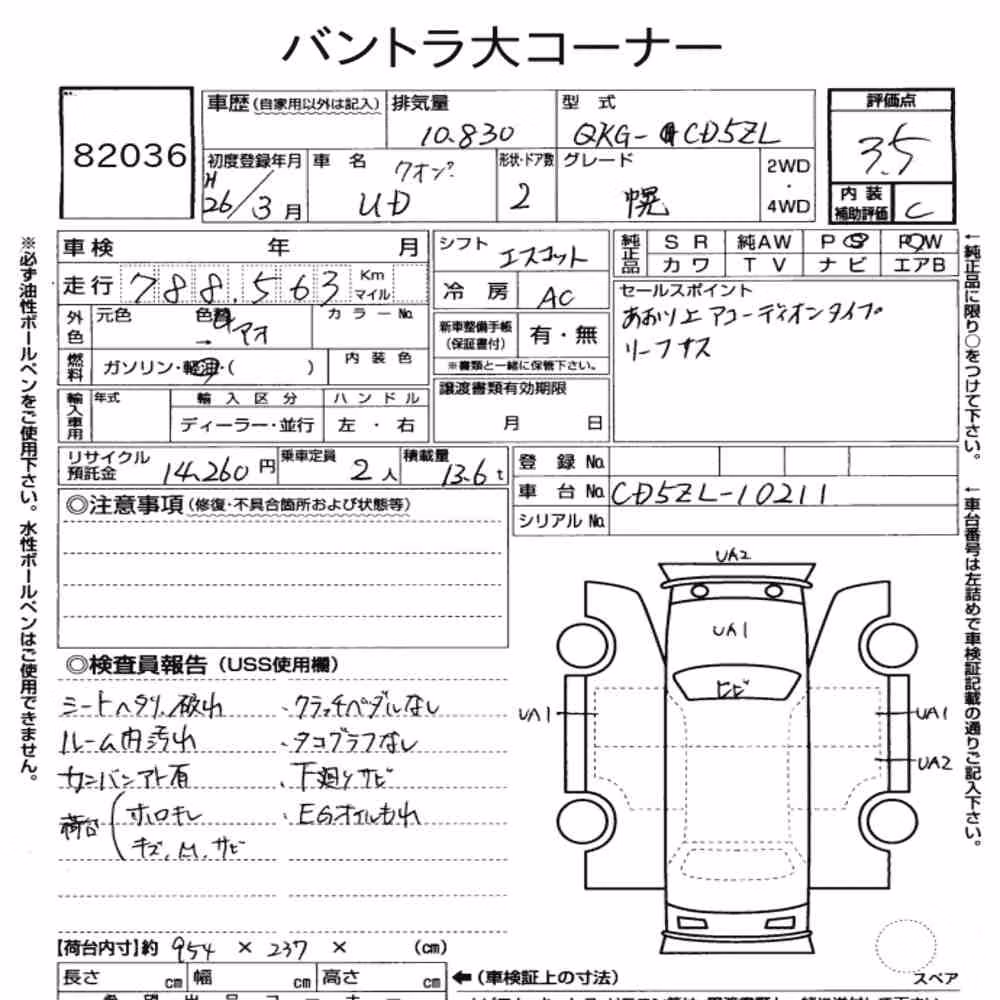 バントラ大コーナー
82036
車歴(自家用以外は記入)
排気量 10.830
型式 QKG-CD5ZL
評価点 3.5
内装補助評価 C
初度登録年月 H26/3月
車名 クオン UD
形状・ドア数 2
グレード 幌
2WD・4WD
車検 年 月
走行 788.563 Km マイル
外色 元色 色替 → アオ カラーNo.
燃料 ガソリン・軽油・( ) 内装色
輸入車用 年式 輸入区分 ハンドル
ディーラー・並行 左・右
シフト エスコット
冷房 AC
新車整備手帳(保証書付) 有・無
※書類と一緒に保管下さい。
譲渡書類有効期限
月 日
純正品 SR 純AW PS PW
カワ TV ナビ エアB
セールスポイント
あおり上アコーディオンタイプ
リーフサス
リサイクル預託金 14,260円
乗車定員 2人
積載量 13.6t
登録No.
車台No. CD5ZL-10211
シリアルNo.
◎注意事項(修復・不具合箇所および状態等)
◎検査員報告(USS使用欄)
シートヘタリ.破れ
ルーム内汚れ
カンバンアト有
荷台(ホロキレ
キズ、M、サビ
・クラッチペダルなし
・タコグラフなし
・下廻りサビ
・EGオイルもれ
UA2
UA1
ヒビ
UA1
UA1
UA2
スペア
【荷台内寸】約 954 × 237 × (cm)
長さ cm 幅 cm 高さ cm
←(車検証上の寸法)
※必ず油性ボールペンをご使用下さい。水性ボールペンはご使用できません。
←純正品に限り○をつけて下さい。
←車台番号は左詰めで車検証記載の通りご記入下さい。